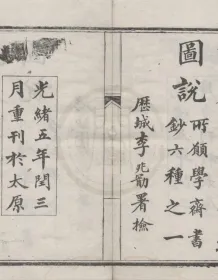 圖說
所願學齋書
鈔六種之一
歷城李兆勖署檢
光緒五年閏三
月重刊於太原